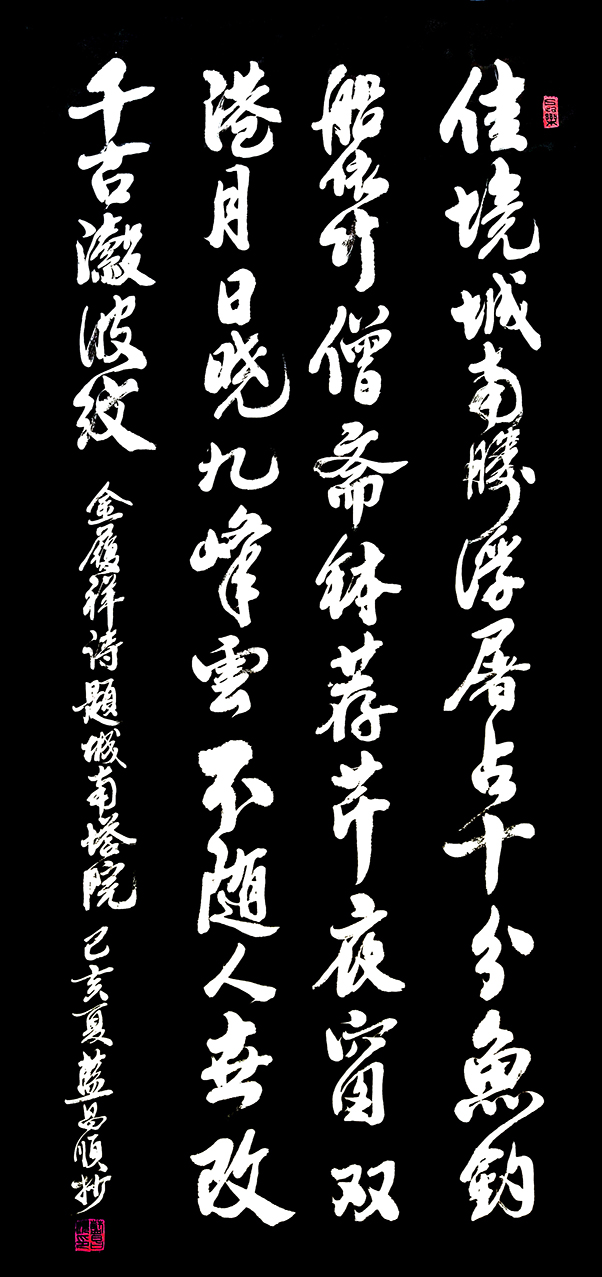 佳境城南勝浮屠占十分魚釣
船依竹僧斋鉢荐芹夜窗双
港月日晓九峰雲不随人世改
千古瀫波紋
金履祥诗題城南塔院 己亥夏藍順抄